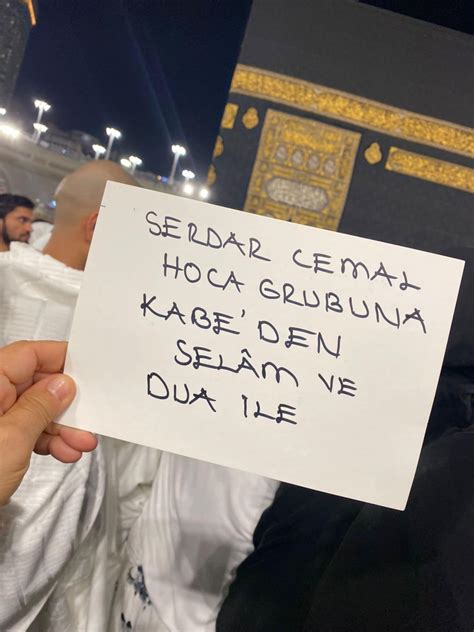 SERDAR CEMAL
HOCA GRUBUNA
KABE'DEN
SELÂM VE
DUA İLE